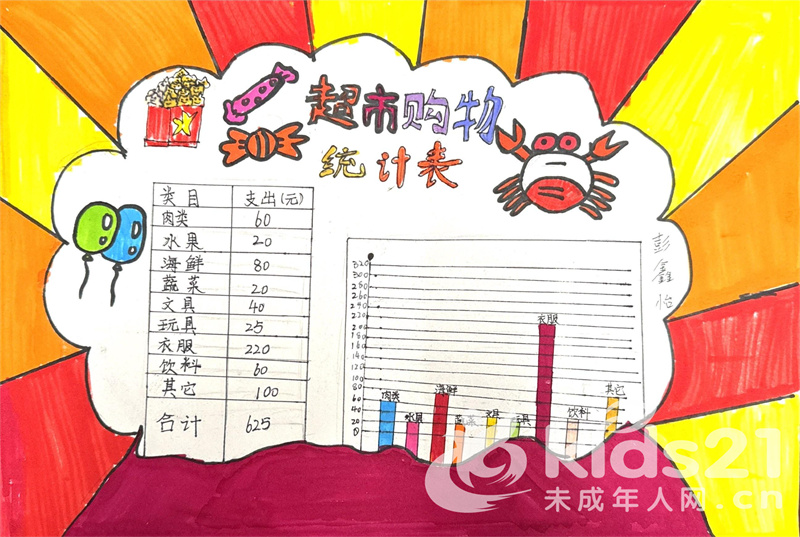 超市购物
统计表
类目 支出(元)
肉类 60
水果 20
海鲜 80
蔬菜 20
文具 40
玩具 25
衣服 220
饮料 60
其它 100
合计 625
彭鑫怡
320
300
280
260
240
220
200
180
160
140
120
100
80
60
40
20
0
肉类
水果
海鲜
蔬菜
文具
玩具
衣服
饮料
其它
Kids21
未成年人网.cn